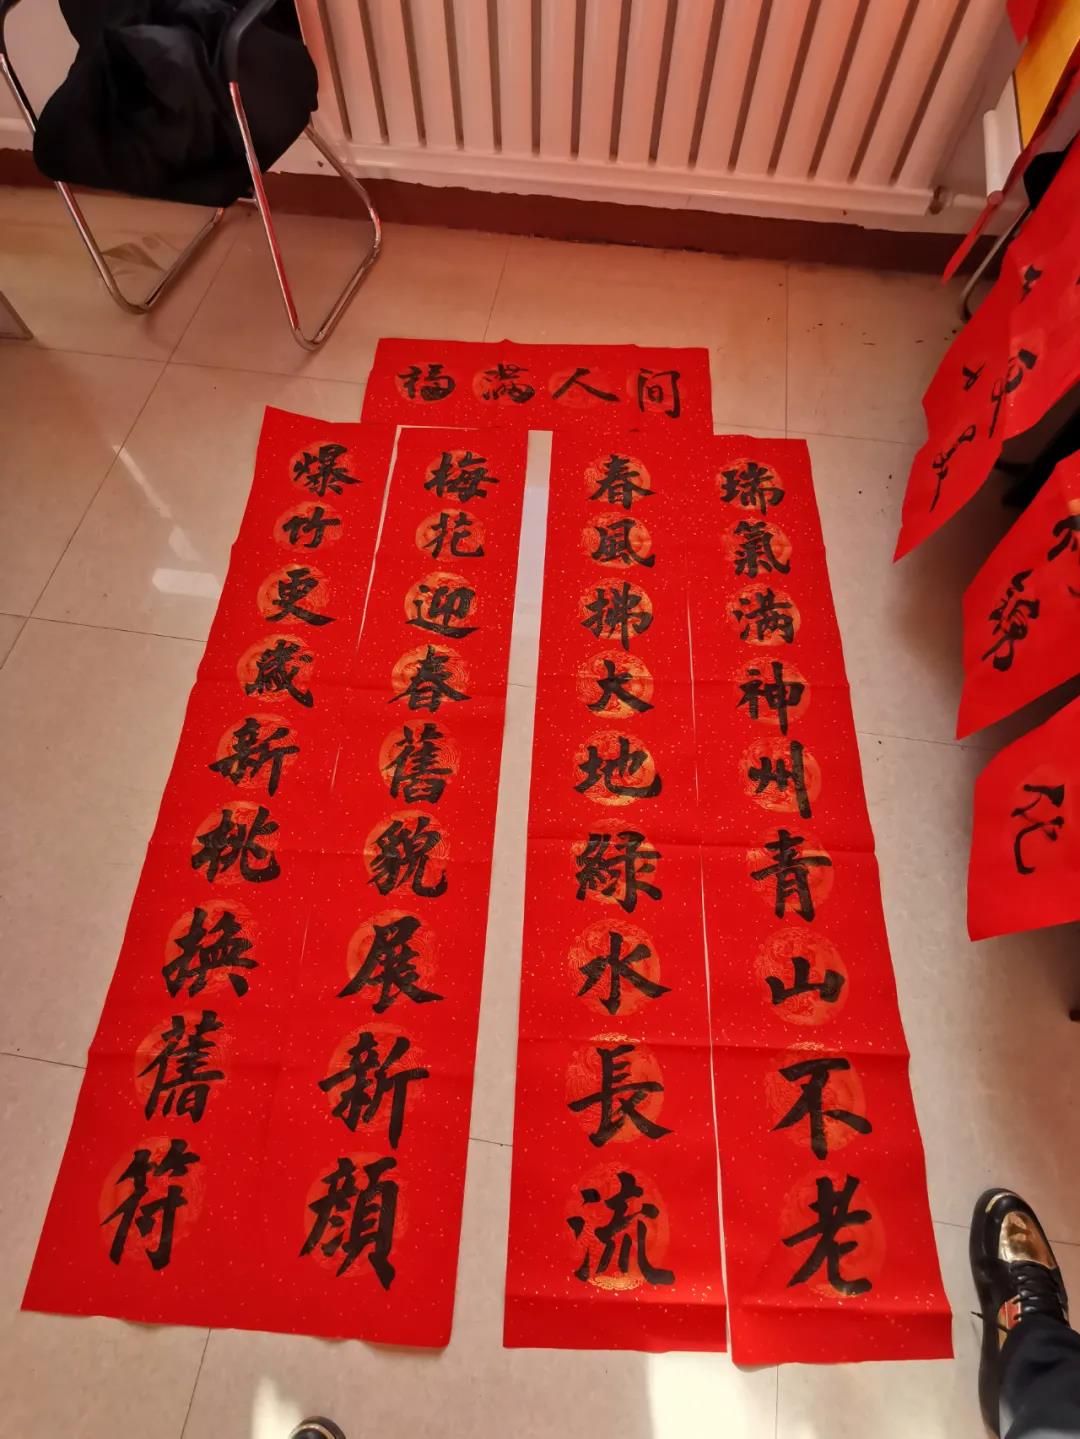 福滿人间
爆竹更歲新桃換舊符
梅花迎春舊貌展新顏
春風拂大地綠水長流
瑞氣满神州青山不老